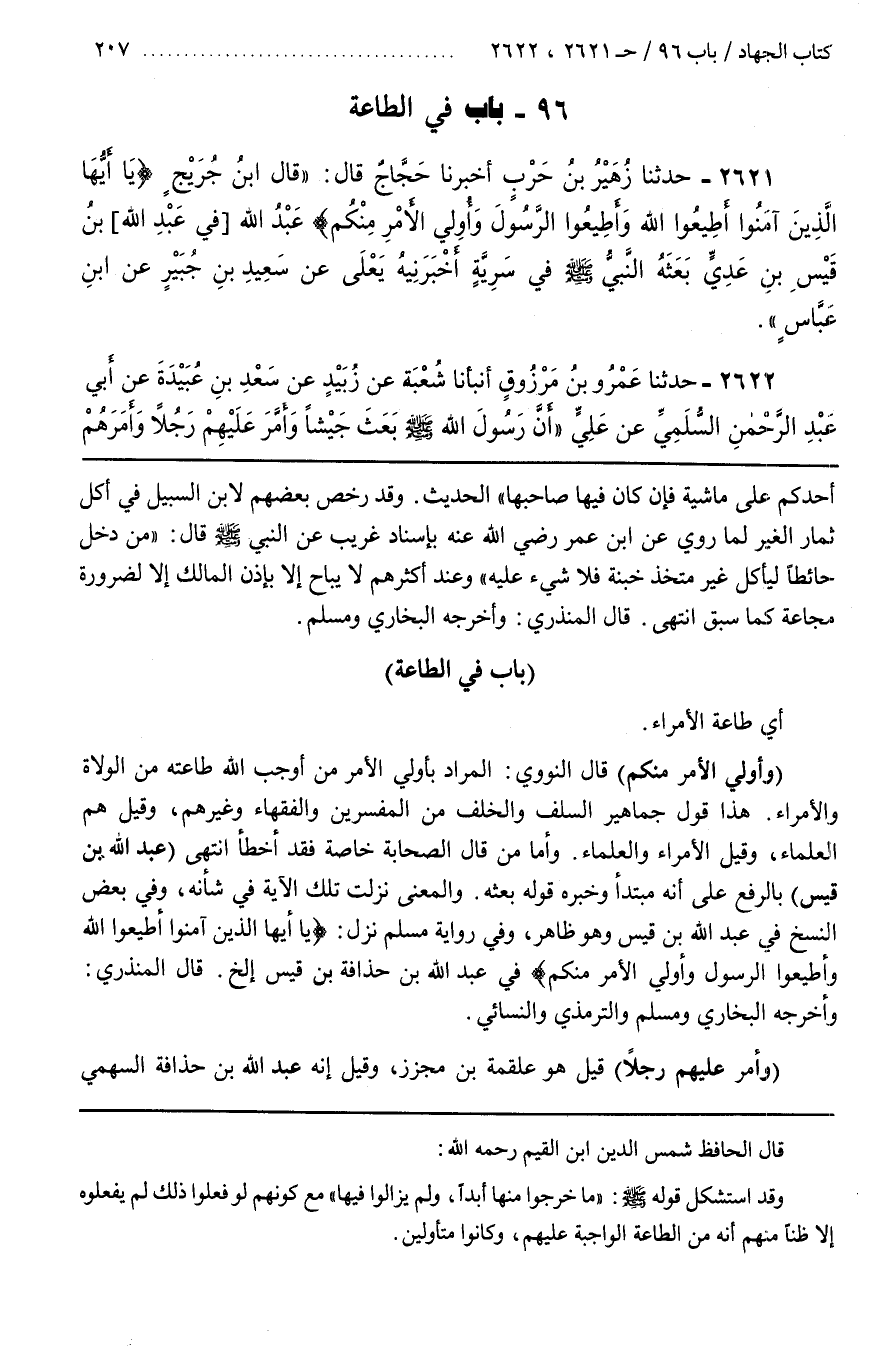 كتاب الجهاد / باب ٩٦ / حـ ٢٦٢١ ، ٢٦٢٢ ...................................... ٢٠٧
٩٦ - باب في الطاعة
٢٦٢١ - حدثنا زُهَيْرُ بنُ حَرْبٍ أخبرنا حَجَّاجٌ قال: «قال ابنُ جُرَيْجٍ ﴿يَا أَيُّهَا
الَّذِينَ آمَنُوا أَطِيعُوا الله وَأَطِيعُوا الرَّسُولَ وَأُولِي الأَمْرِ مِنْكُم﴾ عَبْدُ الله [في عَبْدِ الله] بنُ
قَيْسِ بنِ عَدِيٍّ بَعَثَهُ النَّبيُّ ﷺ في سَرِيَّةٍ أَخْبَرَنِيهُ يَعْلَى عن سَعِيدِ بنِ جُبَيْرٍ عن ابنِ
عَبَّاسٍ».
٢٦٢٢ - حدثنا عَمْرُو بنُ مَرْزُوقٍ أنبأنا شُعْبَة عن زُبَيْدٍ عن سَعْدِ بنِ عُبَيْدَةَ عن أَبي
عَبْدِ الرَّحْمٰنِ السُّلَمِيِّ عن عَلِيٍّ «أَنَّ رَسُولَ الله ﷺ بَعَثَ جَيْشاً وَأَمَّرَ عَلَيْهِمْ رَجُلاً وَأَمَرَهُمْ
أحدكم على ماشية فإن كان فيها صاحبها» الحديث. وقد رخص بعضهم لابن السبيل في أكل
ثمار الغير لما روي عن ابن عمر رضي الله عنه بإسناد غريب عن النبي ﷺ قال: «من دخل
حائطاً ليأكل غير متخذ خبنة فلا شيء عليه» وعند أكثرهم لا يباح إلا بإذن المالك إلا لضرورة
مجاعة كما سبق انتهى. قال المنذري: وأخرجه البخاري ومسلم.
(باب في الطاعة)
أي طاعة الأمراء.
(وأولي الأمر منكم) قال النووي: المراد بأولي الأمر من أوجب الله طاعته من الولاة
والأمراء. هذا قول جماهير السلف والخلف من المفسرين والفقهاء وغيرهم، وقيل هم
العلماء، وقيل الأمراء والعلماء. وأما من قال الصحابة خاصة فقد أخطأ انتهى (عبد الله بن
قيس) بالرفع على أنه مبتدأ وخبره قوله بعثه. والمعنى نزلت تلك الآية في شأنه، وفي بعض
النسخ في عبد الله بن قيس وهو ظاهر، وفي رواية مسلم نزل: ﴿يا أيها الذين آمنوا أطيعوا الله
وأطيعوا الرسول وأولي الأمر منكم﴾ في عبد الله بن حذافة بن قيس إلخ. قال المنذري:
وأخرجه البخاري ومسلم والترمذي والنسائي.
(وأمر عليهم رجلاً) قيل هو علقمة بن مجزز، وقيل إنه عبد الله بن حذافة السهمي
قال الحافظ شمس الدين ابن القيم رحمه الله:
وقد استشكل قوله ﷺ: «ما خرجوا منها أبداً، ولم يزالوا فيها» مع كونهم لو فعلوا ذلك لم يفعلوه
إلا ظناً منهم أنه من الطاعة الواجبة عليهم، وكانوا متأولين.